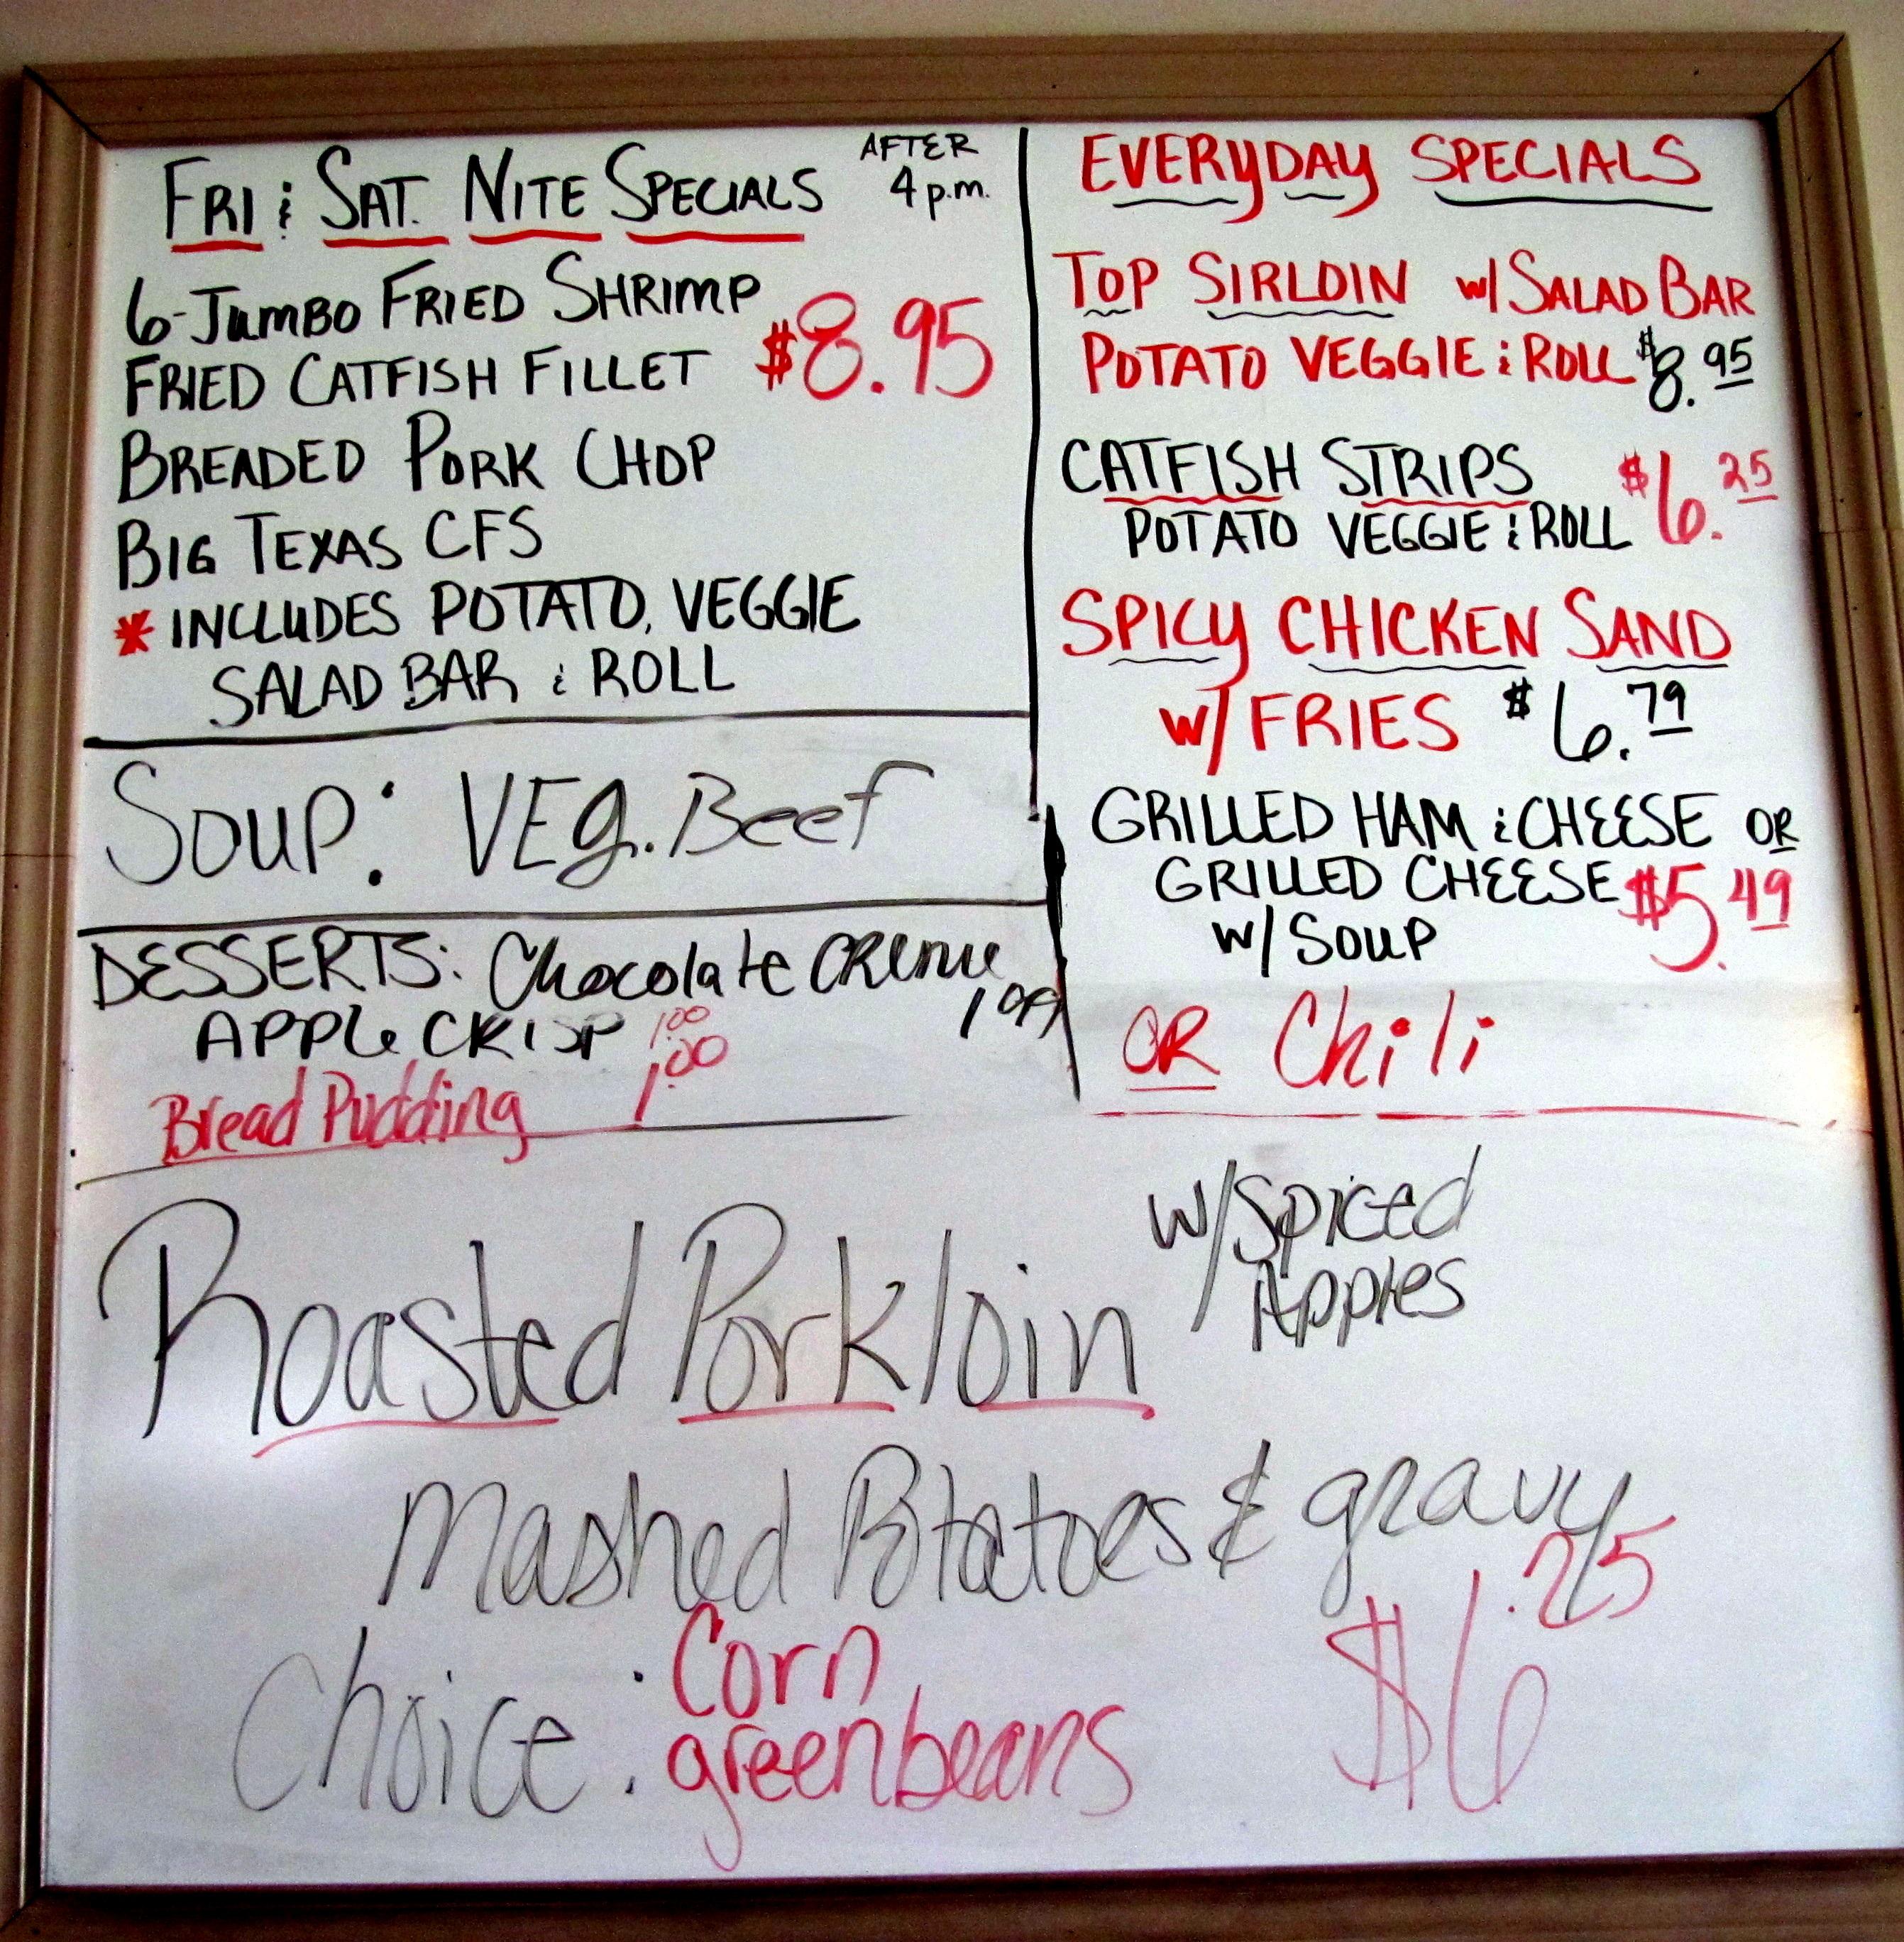 FRI & SAT. NITE SPECIALS AFTER 4 p.m.
6-JUMBO FRIED SHRIMP
FRIED CATFISH FILLET $8.95
BREADED PORK CHOP
BIG TEXAS CFS
* INCLUDES POTATO, VEGGIE
SALAD BAR & ROLL
Soup: VEg. Beef
DESSERTS: Chocolate CREME
1.09
APPLE CRISP 1.00
Bread Pudding 1.00
EVERYDAY SPECIALS
TOP SIRLOIN w/ SALAD BAR
POTATO VEGGIE & ROLL $8.95
CATFISH STRIPS $6.25
POTATO VEGGIE & ROLL
SPICY CHICKEN SAND
w/ FRIES $6.79
GRILLED HAM & CHEESE OR
GRILLED CHEESE $5.49
w/ SOUP
OR Chili
Roasted Pork loin w/ Spiced
Apples
Mashed Potatoes & gravy
$6.25
Choice: Corn
green beans